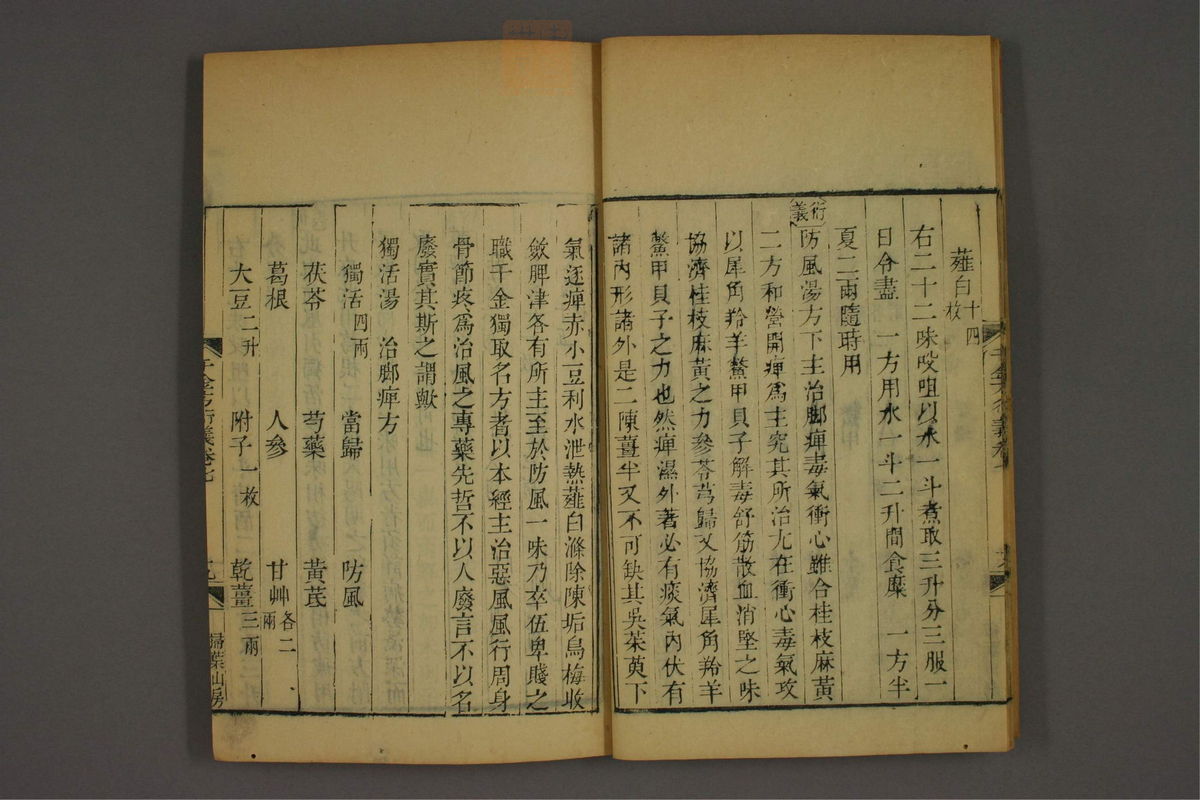 薤白十四枚
右二十二味㕮咀以水一斗煮取三升分三服一
日令盡　一方用水一斗二升間食糜　一方半
夏二兩隨時用
衍義
防風湯方下主治脚痺毒氣衝心雖合桂枝麻黃
二方和營開痺爲主究其所治尢在衝心毒氣攻
以犀角羚羊鱉甲貝子解毒舒筋散血消堅之味
協濟桂枝麻黃之力參苓芎歸又協濟犀角羚羊
鱉甲貝子之力也然痺濕外著必有痰氣內伏有
諸內形諸外是二陳薑半又不可缺其吳茱萸下
氣逐痺赤小豆利水泄熱薤白滌除陳垢烏梅收
斂脾津各有所主至於防風一味乃卒伍卑賤之
職千金獨取名方者以本經主治惡風風行周身
骨節疼爲治風之專藥先哲不以人廢言不以名
廢實其斯之謂歟
獨活湯　治脚痺方
獨活四兩　當歸　防風
茯苓　芍藥　黃芪
葛根　人參　甘艸各二兩
大豆二升　附子一枚　乾薑三兩
千金方衍義卷七　九　掃葉山房